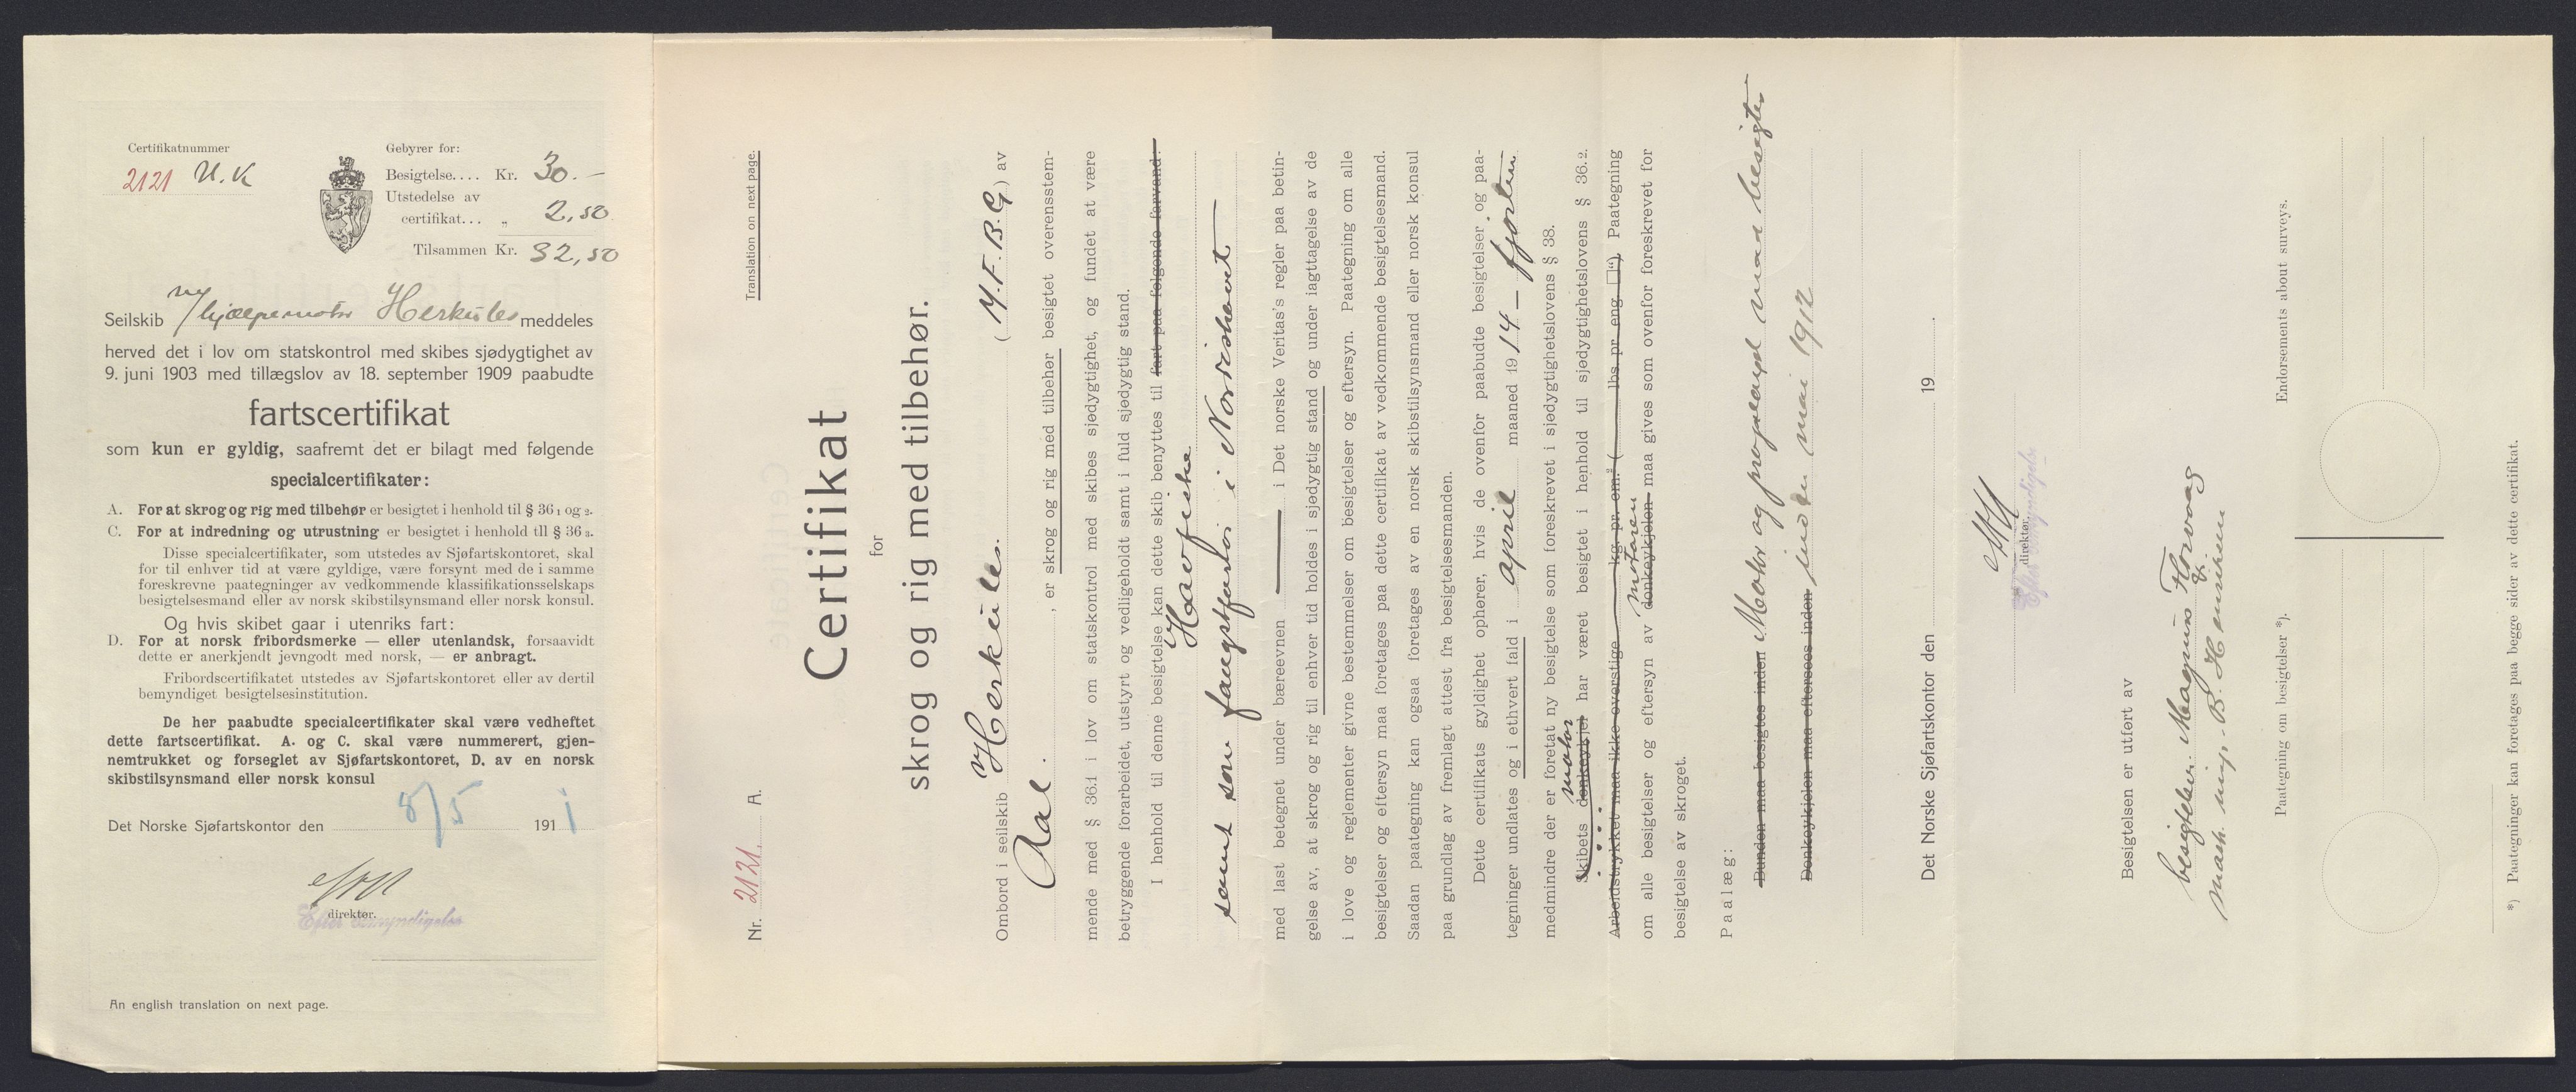 Certifikatnummer
2121 U.K
Gebyrer for:
Besigtelse.... Kr. 30.—
Utstedelse av
certifikat... „ 2,50
Tilsammen Kr. 32,50
Seilskib m/hjælpemotor Herkules meddeles
herved det i lov om statskontrol med skibes sjødygtighet av
9. juni 1903 med tillægslov av 18. september 1909 paabudte
fartscertifikat
som kun er gyldig, saafremt det er bilagt med følgende
specialcertifikater:
A. For at skrog og rig med tilbehør er besigtet i henhold til § 36 1 og 2.
C. For at indredning og utrustning er besigtet i henhold tll § 36 3.
Disse specialcertifikater, som utstedes av Sjøfartskontoret, skal
for til enhver tid at være gyldige, være forsynt med de i samme
foreskrevne paategninger av vedkommende klassifikationsselskaps
besigtelsesmand eller av norsk skibstilsynsmand eller norsk konsul.
Og hvis skibet gaar i utenriks fart:
D. For at norsk fribordsmerke — eller utenlandsk, forsaavidt
dette er anerkjendt jevngodt med norsk, — er anbragt.
Fribordscertifikatet utstedes av Sjøfartskontoret eller av dertil
bemyndiget besigtelsesinstitution.
De her paabudte specialcertifikater skal være vedheftet
dette fartscertifikat. A. og C. skal være nummerert, gjen-
nemtrukket og forseglet av Sjøfartskontoret, D. av en norsk
skibstilsynsmand eller norsk konsul
Det Norske Sjøfartskontor den 8/5 1911
direktør.
Efter bemyndigelse
An english translation on next page.
Nr. 2121. A.
Translation on next page.
Certifikat
for
skrog og rig med tilbehør.
Ombord i seilskib Herkules. (M.F.B.G.) av
Aal. , er skrog og rig med tilbehør besigtet overenstem-
mende med § 36.1 i lov om statskontrol med skibes sjødygtighet, og fundet at være
betryggende forarbeidet, utstyrt og vedligeholdt samt i fuld sjødygtig stand.
I henhold til denne besigtelse kan dette skib benyttes til fart paa følgende farvand:
Havfiske
samt som fangstfartøi i Nordishavet —
med last betegnet under bæreevnen — i Det norske Veritas's regler paa betin-
gelse av, at skrog og rig til enhver tid holdes i sjødygtig stand og under iagttagelse av de
i love og reglementer givne bestemmelser om besigtelser og eftersyn. Paategning om alle
besigtelser og eftersyn maa foretages paa dette certifikat av vedkommende besigtelsesmand.
Saadan paategning kan ogsaa foretages av en norsk skibstilsynsmand eller norsk konsul
paa grundlag av fremlagt attest fra besigtelsesmanden.
Dette certifikats gyldighet ophører, hvis de ovenfor paabudte besigtelser og paa-
tegninger undlates og i ethvert fald i april maaned 1914 — fjorten
medmindre der er foretat ny besigtelse som foreskrevet i sjødygtighetslovens § 38.
motor
Skibets donkeykjel har været besigtet i henhold til sjødygtighetslovens § 36.2.
Arbeidstrykket maa ikke overstige kg. pr. cm.² ( lbs. pr. eng. □"). Paategning
motoren
om alle besigtelser og eftersyn av donkeykjelen maa gives som ovenfor foreskrevet for
besigtelse av skroget.
Paalæg:
Bunden maa besigtes inden Motor og propelaxel maa besigtes
Donkeykjelen maa efterseees inden inden mai 1912
Det Norske Sjøfartskontor den 19 .
direktør.
Efter bemyndigelse
Besigtelsen er utført av
besigtelsesm. Magnus Horvaag
&
mask. insp. B. Henriksen
Paategning om besigtelser *).
Endorsements about surveys.
*) Paategninger kan foretages paa begge sider av dette certifikat.